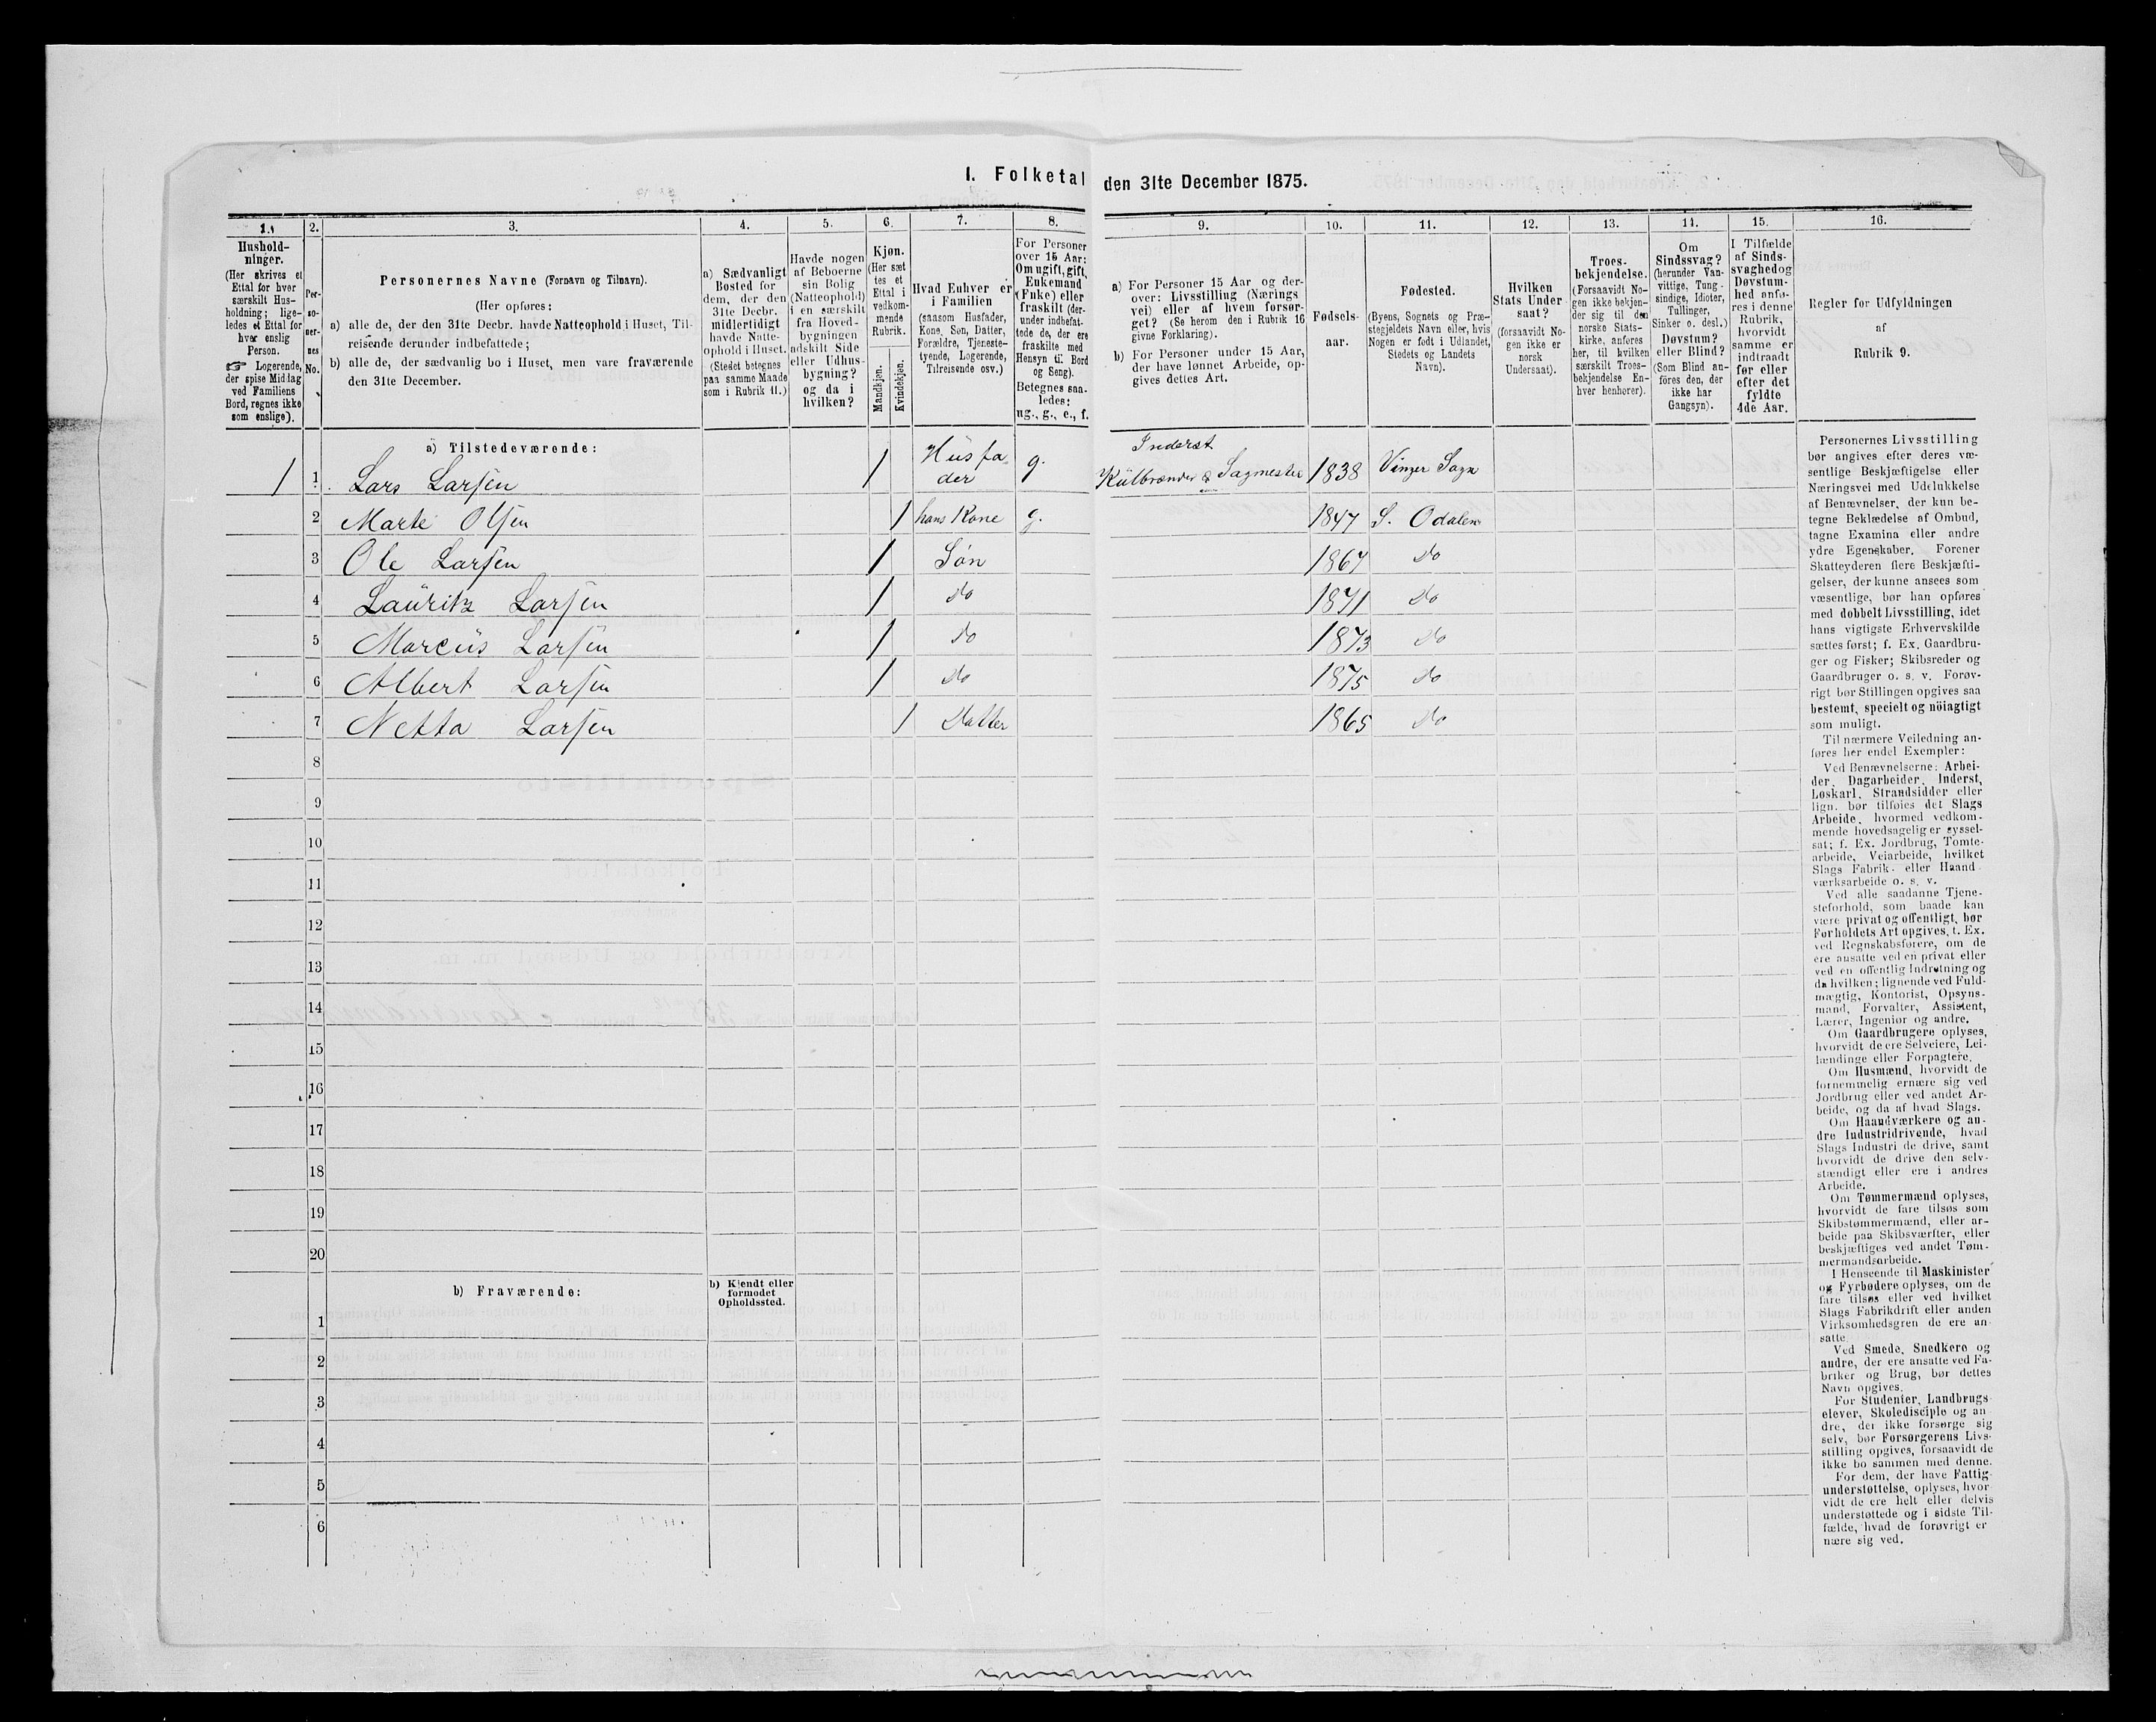 I. Folketal den 31te December 1875.
1. 2. 3. 4. 5. 6. 7. 8. 9. 10. 11. 12. 13. 14. 15. 16.
Hushold-
ninger.
(Her skrives et
Ettal for hver
særskilt Hus-
holdning; lige-
ledes et Ettal for
hver enslig
Person.
☞ Logerende,
der spise Middag
ved Familiens
Bord, regnes ikke
som enslige).
Per-
so-
ner-
nes
No.
Personernes Navne (Fornavn og Tilnavn).
(Her opføres:
a) alle de, der den 31te Decbr. havde Natteophold i Huset, Til-
reisende derunder indbefattede;
b) alle de, der sædvanlig bo i Huset, men vare fraværende
den 31te December.
a) Sædvanligt
Bosted for
dem, der den
31te Decbr.
midlertidigt
havde Natte-
ophold i Huset.
(Stedet betegnes
paa samme Maade
som i Rubrik 11.)
Havde nogen
af Beboerne
sin Bolig
(Natteophold)
i en særskilt
fra Hoved-
bygningen
adskilt Side
eller Udhus-
bygning?
og da i
hvilken?
Kjøn.
(Her sæt
tes et
Ettal i
vedkom-
mende
Rubrik.
Mandkjøn.
Kvindekjøn.
Hvad Enhver er
i Familien
(saasom Husfader,
Kone, Søn, Datter,
Forældre, Tjeneste-
tyende, Logerende,
Tilreisende osv.)
For Personer
over 15 Aar:
Om ugift, gift,
Enkemand
(Enke) eller
fraskilt (der-
under indbefat-
tede de, der ere
fraskilte med
Hensyn til Bord
og Seng).
Betegnes saa-
ledes:
ug., g., e., f.
a) For Personer 15 Aar og der-
over: Livsstilling (Nærings
vei) eller af hvem forsør-
get? (Se herom den i Rubrik 16
givne Forklaring).
b) For Personer under 15 Aar,
der have lønnet Arbeide, op-
gives dettes Art.
Fødsels-
aar.
Fødested.
(Byens, Sognets og Præ-
stegjeldets Navn eller, hvis
Nogen er født i Udlandet,
Stedets og Landets
Navn).
Hvilken
Stats Under
saat?
(forsaavidt No-
gen ikke er
norsk
Undersaat).
Troes-
bekjendelse.
(Forsaavidt No-
gen ikke bekjen-
der sig til den
norske Stats-
kirke, anføres
her, til hvilken
særskilt Troes-
bekjendelse En-
hver henhører).
Om
Sindssvag?
(herunder Van-
vittige, Tung-
sindige, Idioter,
Tullinger,
Sinker o. desl.)
Døvstum?
eller Blind?
(Som Blind an-
føres den, der
ikke har
Gangsyn).
I Tilfælde
af Sinds-
svaghed og
Døvstum-
hed anfø-
res i denne
Rubrik,
hvorvidt
samme er
indtraadt
før eller
efter det
fyldte
4de Aar.
Regler for Udfyldningen
af
Rubrik 9.
a) Tilstedeværende:
1 1 Lars Larsen 1 Husfa
der g. Inderst
Kulbrænder & Sagmester 1838 Vinger Sogn
2 Marte Olsen 1 hans Kone g. 1847 S. Odalen
3 Ole Larsen 1 Søn 1867 Do
4 Lauritz Larsen 1 Do 1871 Do
5 Marcus Larsen 1 Do 1873 Do
6 Albert Larsen 1 Do 1875 Do
7 Netta Larsen 1 Datter 1865 Do
8
9
10
11
12
13
14
15
16
17
18
19
20
b) Fraværende:
b) Kjendt eller
formodet
Opholdssted.
1
2
3
4
5
6
Personernes Livsstilling
bør angives efter deres væ-
sentlige Beskjæftigelse eller
Næringsvei med Udelukkelse
af Benævnelser, der kun be-
tegne Beklædelse af Ombud,
tagne Examina eller andre
ydre Egenskaber. Forener
Skatteyderen flere Beskjæfti-
gelser, der kunne ansees som
væsentlige, bør han opføres
med dobbelt Livsstilling, idet
hans vigtigste Erhvervskilde
sættes først; f. Ex. Gaardbru-
ger og Fisker; Skibsreder og
Gaardbruger o. s. v. Forøv-
rigt bør Stillingen opgives saa
bestemt, specielt og nöiagtigt
som muligt.
Til nærmere Veiledning an-
føres her endel Exempler:
Ved Benævnelserne: Arbei-
der, Dagarbeider, Inderst,
Løskarl, Strandsidder eller
lign. bør tilføies det Slags
Arbeide, hvormed vedkom-
mende hovedsagelig er syssel-
sat; f. Ex. Jordbrug, Tomte-
arbeide, Veiarbeide, hvilket
Slags Fabrik- eller Haand
værksarbeide o. s. v.
Ved alle saadanne Tjene-
steforhold, som baade kan
være privat og offentligt, bør
Forholdets Art opgives, f. Ex.
ved Regnskabsførere, om de
ere ansatte ved en privat eller
ved en offentlig Indretning og
da hvilken; lignende ved Fuld-
mægtig, Kontorist, Opsyns-
mand, Forvalter, Assistent,
Lærer, Ingeniør og andre.
Om Gaardbrugere oplyses,
hvorvidt de ere Selveiere, Lei-
lændinge eller Forpagtere.
Om Husmænd, hvorvidt de
fornemmelig ernære sig ved
Jordbrug eller ved andet Ar-
beide, og da af hvad Slags.
Om Haandværkere og an-
dre Industridrivende, hvad
Slags Industri de drive, samt
hvorvidt de drive den selv-
stændigt eller ere i andres
Arbeide.
Om Tømmermænd oplyses,
hvorvidt de fare tilsøs som
Skibstømmermænd, eller ar-
beide paa Skibsværfter, eller
beskjæftiges ved andet Tøm-
mermandsarbeide.
I Henseende til Maskinister
og Fyrbødere oplyses, om de
fare tilsøs eller ved hvilket
Slags Fabrikdrift eller anden
Virksomhedsgren de ere an-
satte
Ved Smede, Snedkere og
andre, der ere ansatte ved Fa-
briker og Brug, bør dettes
Navn opgives.
For Studenter, Landbrugs-
elever, Skoledisciple og an-
dre, der ikke forsørge sig
selv, bør Forsørgerens Livs-
stilling opgives, forsaavidt de
ikke bo sammen med denne.
For dem, der have Fattig-
understøttelse, oplyses, hvor-
vidt de ere helt eller delvis
understøttede og i sidste Til-
fælde, hvad de forøvrigt er
nære sig ved.